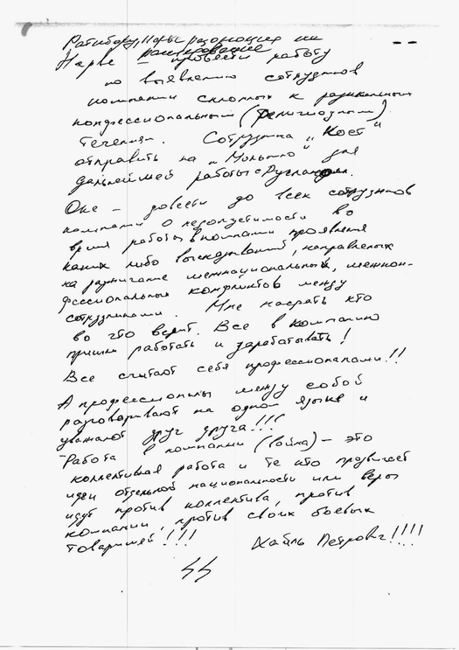 Ратибору, Нарве
Нарве – провести работу
по выявлению сотрудников
компании склонных к радикальным
конфессиональным (религиозным)
течениям. Сотрудника "Кост"
отправить на "Молькино" для
дальнейшей работы с
Оке – довести до всех сотрудников
компании о недопустимости во
время работы в компании проявления
каких либо высказываний, направленых
на разжигание межнациональных, межкон-
фессиональных конфликтов между
сотрудниками. Мне насрать кто
во что верит. Все в компанию
пришли работать и зарабатывать!
Все считают себя профессионалами!!
А профессионалы между собой
разговаривают на одном языке и
уважают друг друга!!!
Работа в компании (война) – это
коллективная работа и те кто продвигает
идеи отдельной национальности или веры
идут против коллектива, против
компании, против своих боевых
товарищей!!! Петрович!!!!